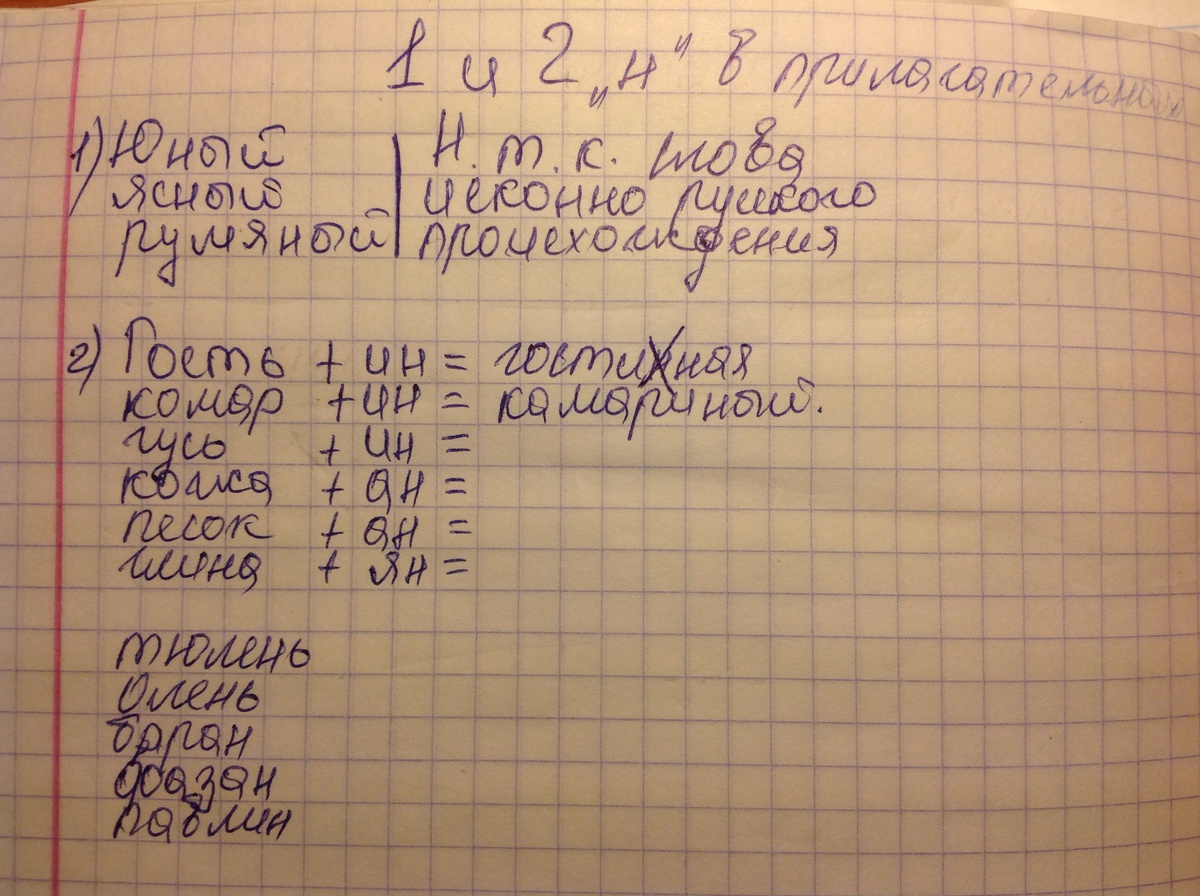 1 и 2 „н" в прилагательных
1) Юный | Н. т. к. слова
ясный | исконно руского
румяный | происхождения
2) Гость + ин = гостиная
комар + ин = камариный.
гусь + ин =
кожа + ан =
песок + ан =
глина + ян =
тюлень
Олень
баран
фазан
павлин